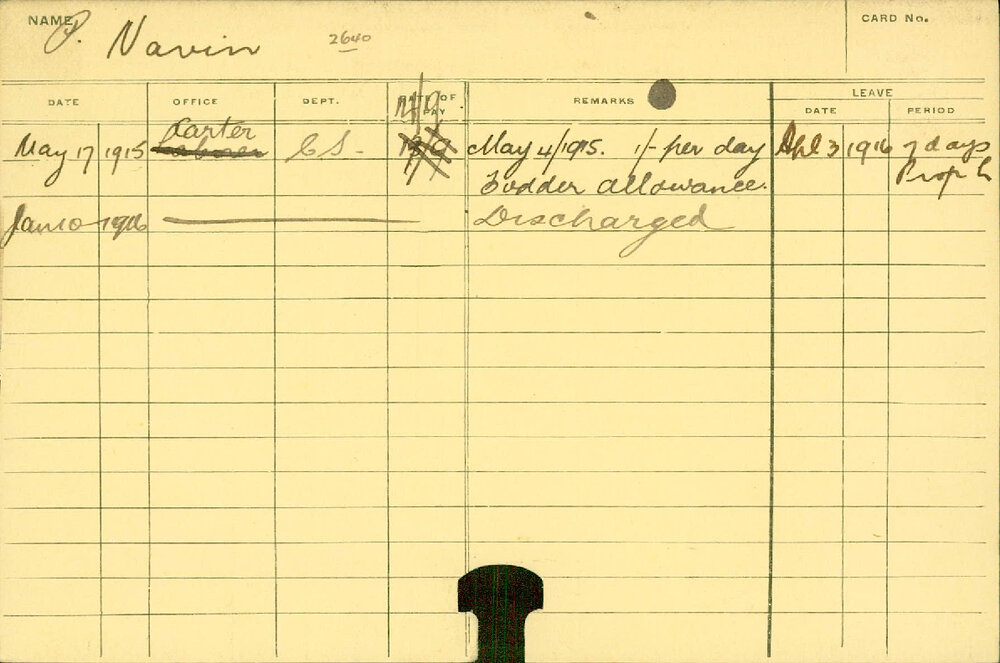 NAME P. Navin 2640 CARD No.
DATE OFFICE DEPT. RATE OF PAY REMARKS LEAVE
DATE PERIOD
14/9
Carter
May 17 1915 Laborer C S - 13/9 May 4/1915. 1/- per day Apl 3 1916 7 days
Fodder allowance. Prop L
Jan 10 1916 Discharged